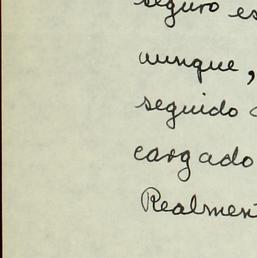 seguro es
aunque,
seguido
cargado
Realmen